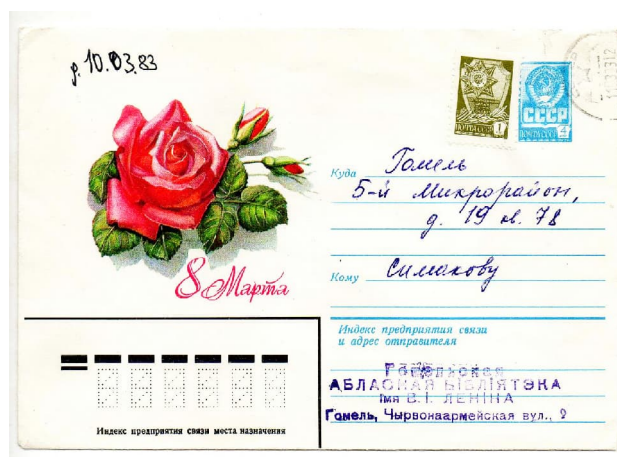 р. 10.03.83
ПОЧТА СССР 1
СССР
ПОЧТА СССР 4
Куда Гомель
5-й Микрорайон,
д. 19 кв. 78
Кому Симакову
8 Марта
Индекс предприятия связи
и адрес отправителя
АБЛАСНАЯ БІБЛІЯТЭКА
імя В. І. ЛЕНІНА
Гомель, Чырвонаармейская вул., 2
Индекс предприятия связи места назначения